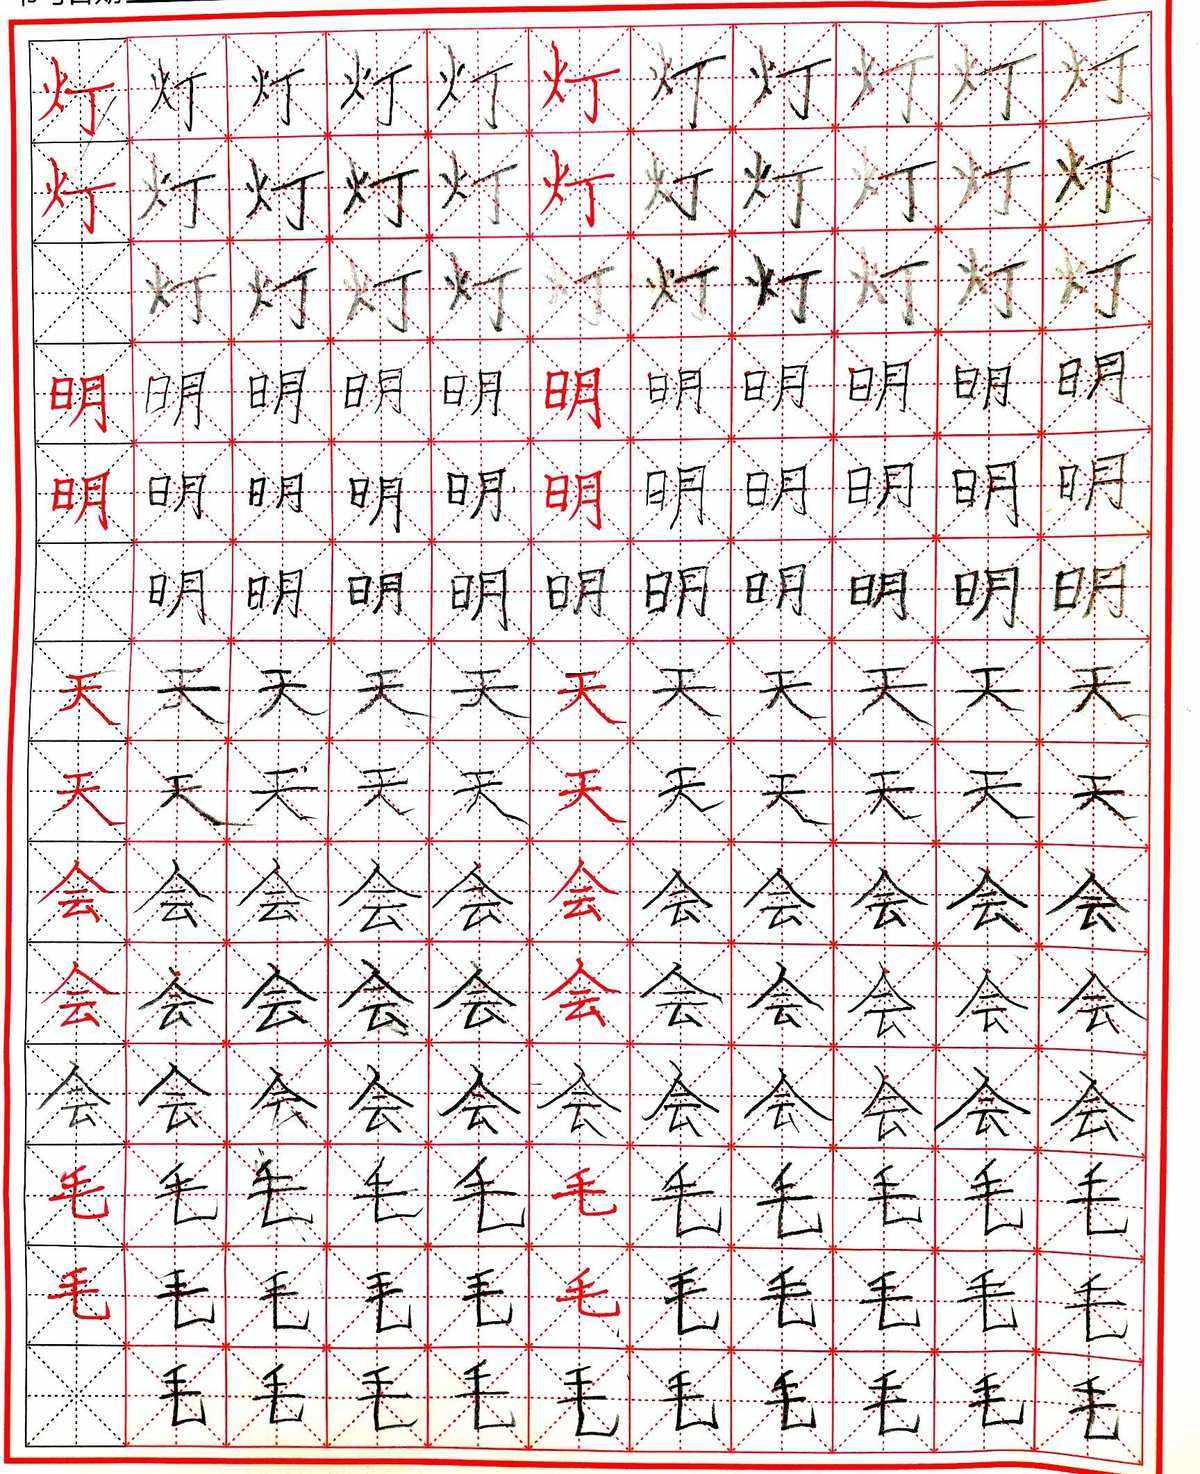 灯灯灯灯灯灯灯灯灯灯灯
灯灯灯灯灯灯灯灯灯灯灯
灯灯灯灯灯灯灯灯灯灯
明明明明明明明明明明明
明明明明明明明明明明明
明明明明明明明明明明
天天天天天天天天天天天
天天天天天天天天天天天
会会会会会会会会会会会
会会会会会会会会会会会
会会会会会会会会会会会
毛毛毛毛毛毛毛毛毛毛毛
毛毛毛毛毛毛毛毛毛毛毛
毛毛毛毛毛毛毛毛毛毛